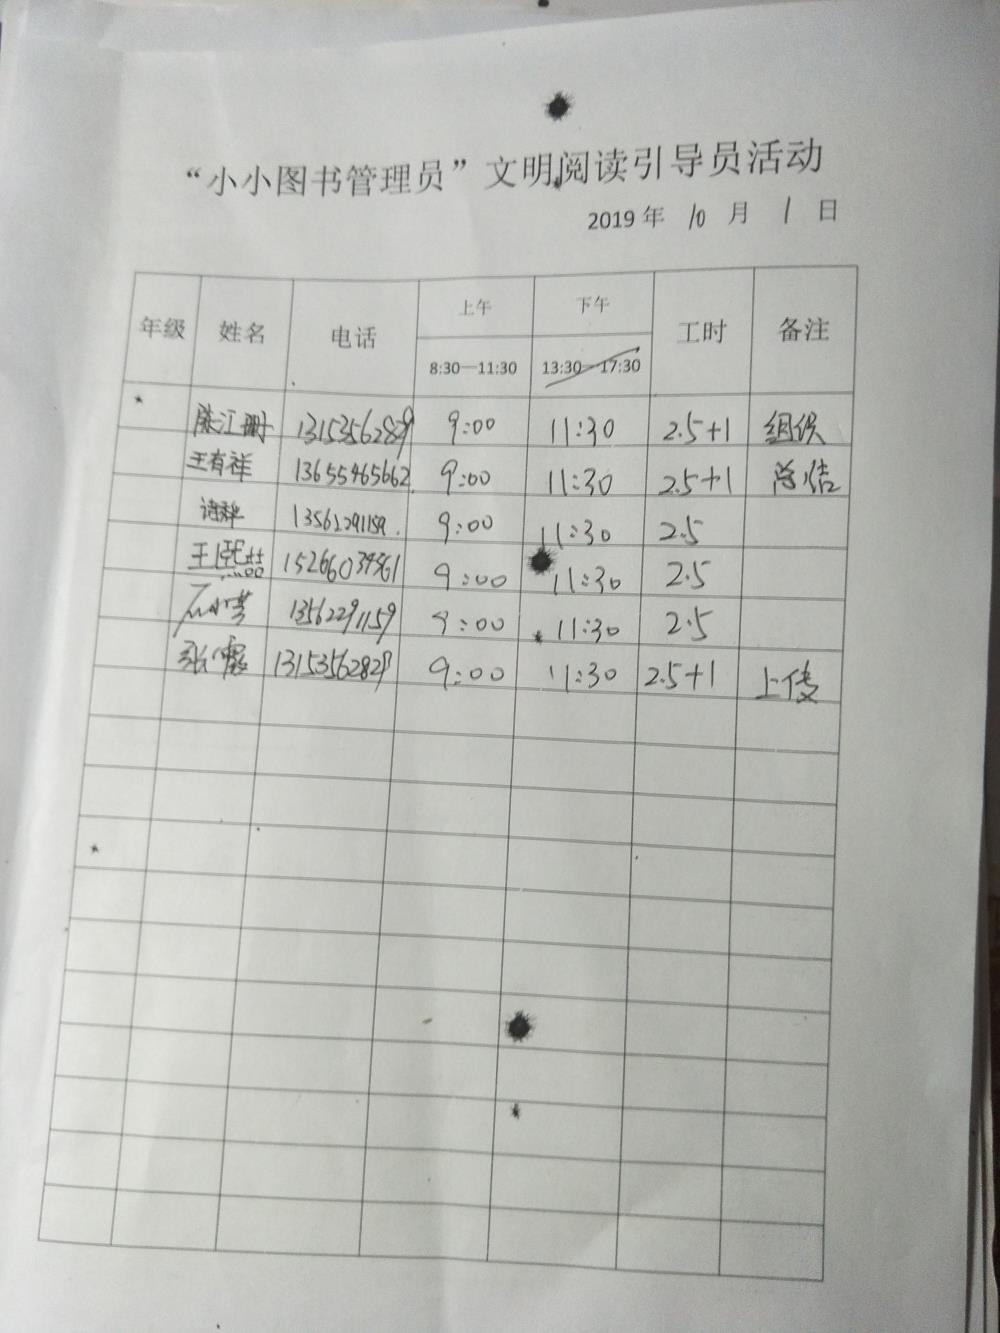 “小小图书管理员”文明阅读引导员活动
2019 年 10 月 1 日
年级 姓名 电话 上午 下午 工时 备注
8:30—11:30 13:30—17:30
陈江珊 13153562829 9:00 11:30 2.5+1 组织
王有祥 13655465662 9:00 11:30 2.5+1 总结
13561291159 9:00 11:30 2.5
王熙喆 9:00 11:30 2.5
13562291159 9:00 11:30 2.5
张 13153562829 9:00 11:30 2.5+1 上传